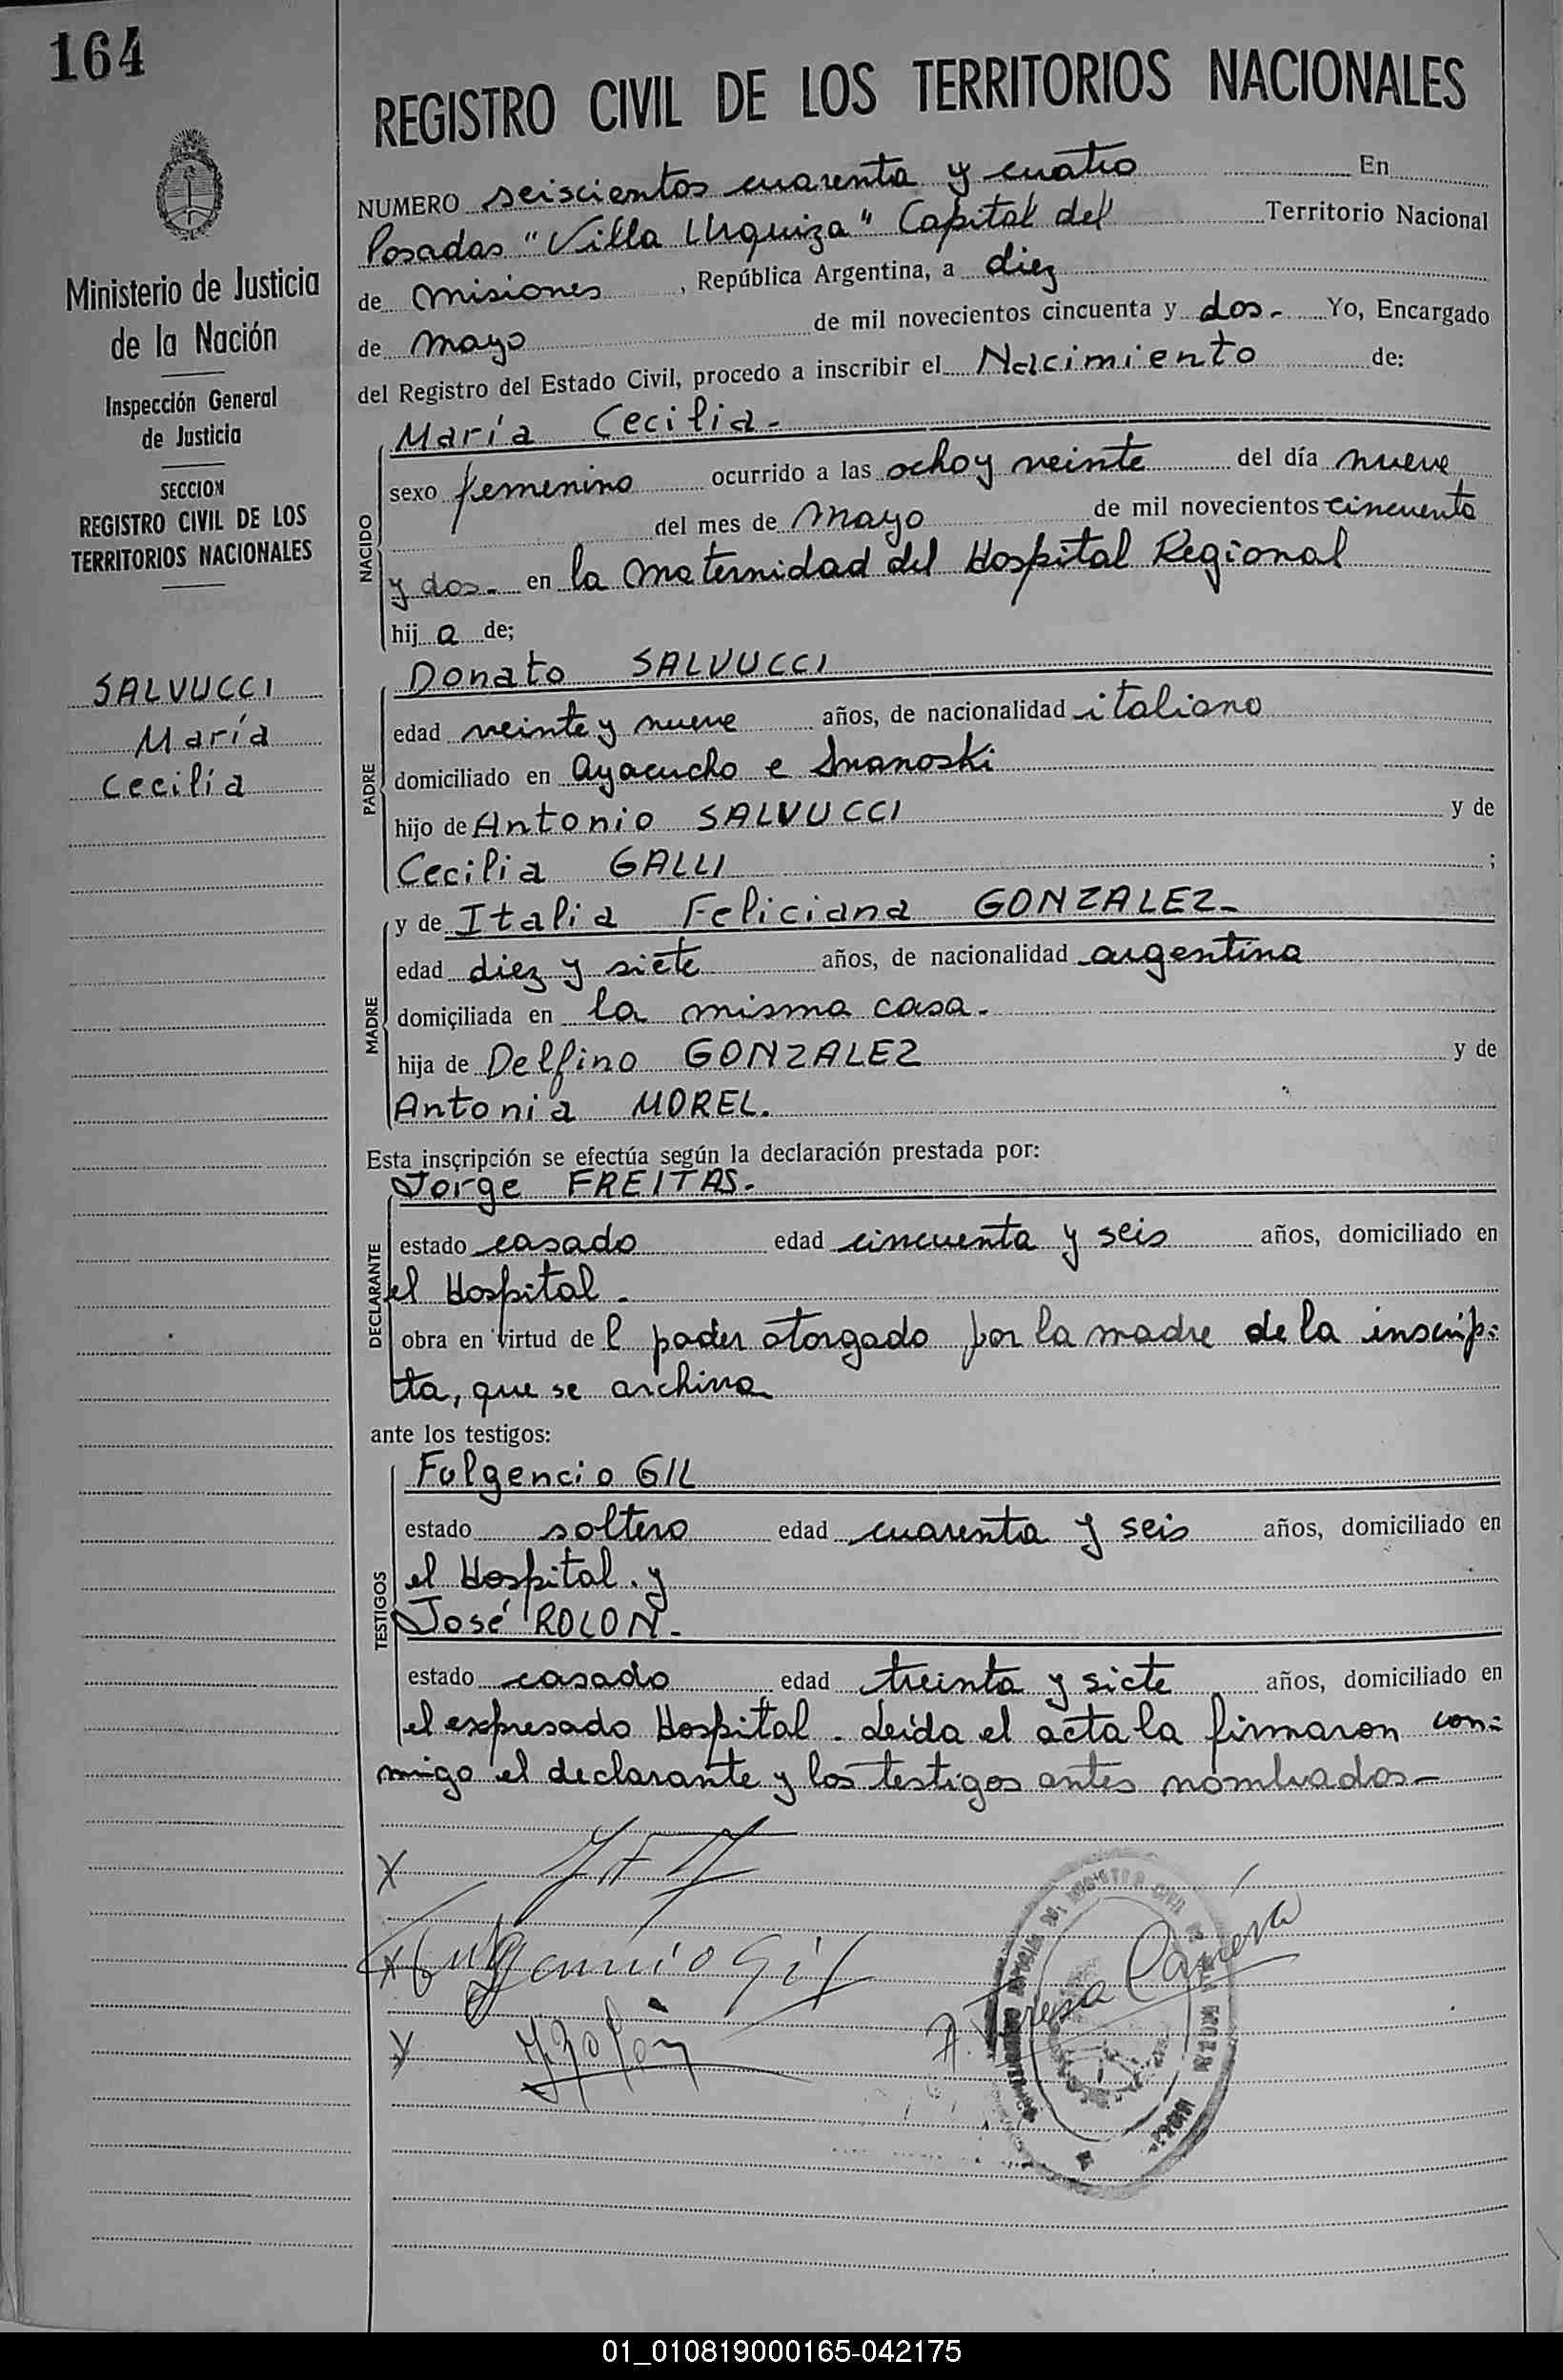 164
REGISTRO CIVIL DE LOS TERRITORIOS NACIONALES
Ministerio de Justicia
de la Nación
Inspección General
de Justicia
SECCION
REGISTRO CIVIL DE LOS
TERRITORIOS NACIONALES
SALVUCCI
María
Cecilia
NUMERO seiscientos cuarenta y cuatro En
Posadas "Villa Urquiza" Capital del Territorio Nacional
de Misiones, República Argentina, a diez
de mayo de mil novecientos cincuenta y dos.- Yo, Encargado
del Registro del Estado Civil, procedo a inscribir el Nacimiento de:
NACIDO
María Cecilia.-
sexo femenino ocurrido a las ocho y veinte del día nueve
del mes de Mayo de mil novecientos cincuenta
y dos.- en la Maternidad del Hospital Regional
hija de;
PADRE
Donato SALVUCCI
edad veinte y nueve años, de nacionalidad italiano
domiciliado en Ayacucho e
hijo de Antonio SALVUCCI y de
Cecilia GALLI ;
MADRE
y de Italia Feliciana GONZALEZ-
edad diez y siete años, de nacionalidad argentina
domiciliada en la misma casa.-
hija de Delfino GONZALEZ y de
Antonia MOREL.
Esta inscripción se efectúa según la declaración prestada por:
DECLARANTE
Jorge FREITAS.-
estado casado edad cincuenta y seis años, domiciliado en
el Hospital.-
obra en virtud del poder otorgado por la madre de la inscrip-
ta, que se archiva
ante los testigos:
TESTIGOS
Fulgencio GIL
estado soltero edad cuarenta y seis años, domiciliado en
el Hospital. y
José ROLON.-
estado casado edad treinta y siete años, domiciliado en
el expresado Hospital. Leída el acta la firmaron con-
migo el declarante y los testigos antes nombrados-
X
X Fulgencio Gil
X J Rolón
01_010819000165-042175